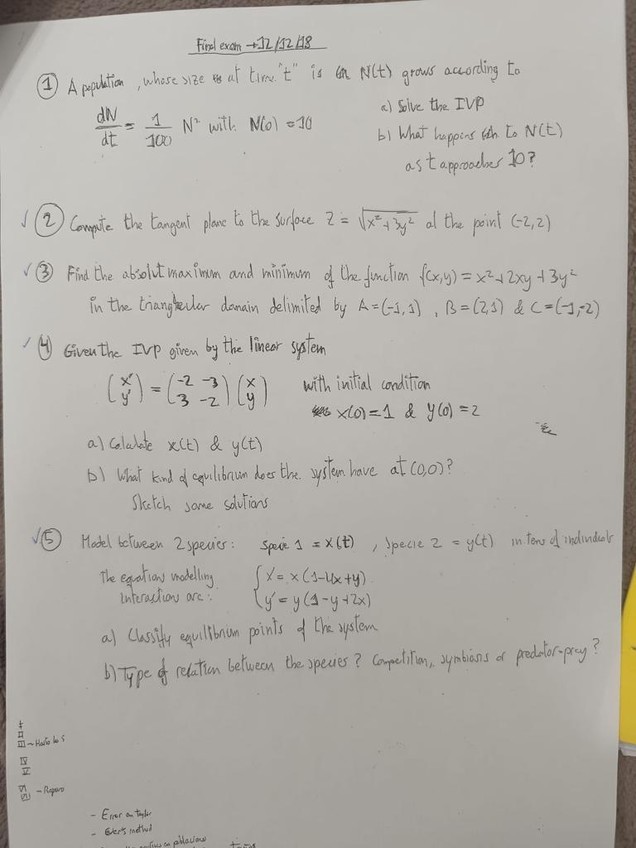 Final exam → 12/12/18
① A population, whose size at time "t" is N(t) grows according to
dN/dt = 1/100 N² with N(0) = 10
a) Solve the IVP
b) What happens to N(t)
as t approaches 10?
√ ② Compute the tangent plane to the surface z = √(x²+3y²) at the point (-2,2)
√ ③ Find the absolut maximum and minimum of the function f(x,y) = x²+2xy+3y²
in the triangular domain delimited by A=(-1,1), B=(2,1) & C=(-1,-2)
√ ④ Given the IVP given by the linear system
(x' y') = (-2 -3 3 -2)(x y) with initial condition
x(0)=1 & y(0)=2
a) Calculate x(t) & y(t)
b) What kind of equilibrium does the system have at (0,0)?
Sketch some solutions
√ ⑤ Model between 2 species: Specie 1 = x(t), Specie 2 = y(t) in tens of individuals
The equations modelling
interactions are:
{ x' = x(1-4x+y)
y' = y(1-y+2x)
a) Classify equilibrium points of the system
b) Type of relation between the species? Competition, symbiosis or predator-prey?
I
II
III
IV
V
VI
- Repaso
- Error on Taylor
- method